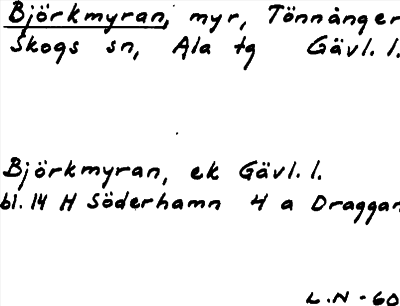 Björkmyran, myr, Tönnånger
Skogs sn, Ala tg Gävl. l.
Björkmyran, ek Gävl. l.
bl. 14 H Söderhamn 4 a Draggan
L.N -60